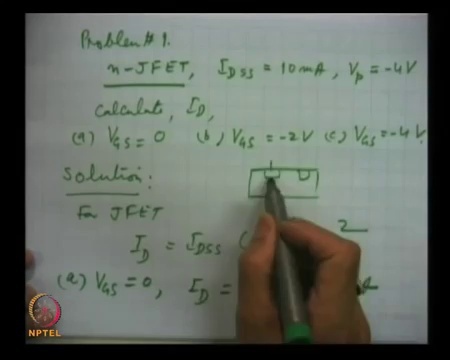 Problem # 1.
n-JFET, I_DSS = 10mA, V_p = -4V
Calculate, I_D,
(a) V_GS = 0 (b) V_GS = -2V (c) V_GS = -4V.
Solution:
For JFET
I_D = I_DSS ( 2
(a) V_GS = 0, I_D =
NPTEL